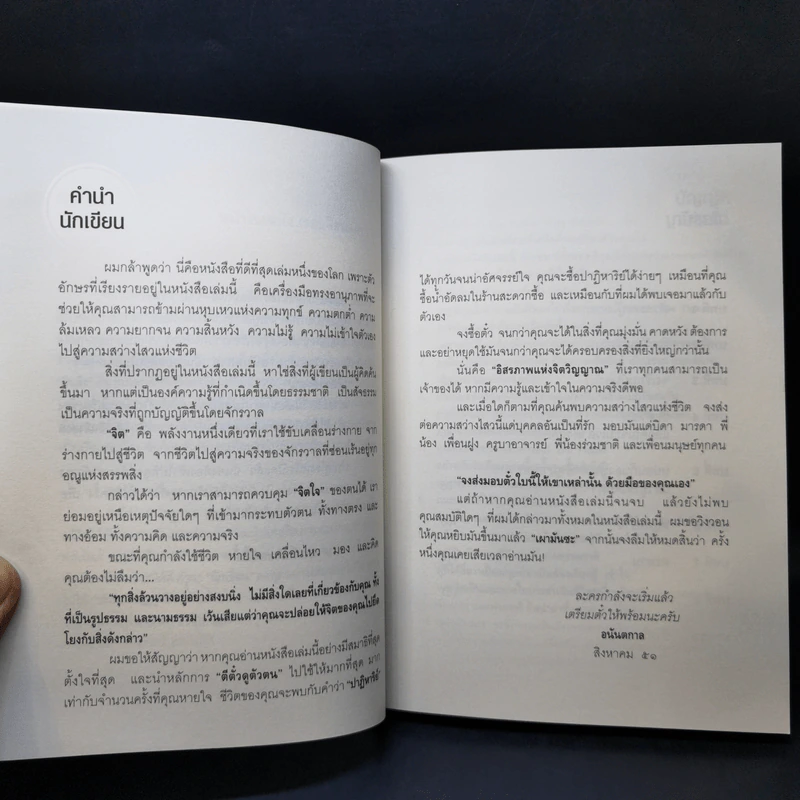 คำนำ
นักเขียน
ผมกล้าพูดว่า นี่คือหนังสือที่ดีที่สุดเล่มหนึ่งของโลก เพราะตัว
อักษรที่เรียงรายอยู่ในหนังสือเล่มนี้ คือเครื่องมือทรงอานุภาพที่จะ
ช่วยให้คุณสามารถข้ามผ่านหุบเหวแห่งความทุกข์ ความตกต่ำ ความ
ล้มเหลว ความยากจน ความสิ้นหวัง ความไม่รู้ ความไม่เข้าใจตัวเอง
ไปสู่ความสว่างไสวแห่งชีวิต
สิ่งที่ปรากฏอยู่ในหนังสือเล่มนี้ หาใช่สิ่งที่ผู้เขียนเป็นผู้คิดค้น
ขึ้นมา หากแต่เป็นองค์ความรู้ที่กำเนิดขึ้นโดยธรรมชาติ เป็นสัจธรรม
เป็นความจริงที่ถูกบัญญัติขึ้นโดยจักรวาล
“จิต” คือ พลังงานหนึ่งเดียวที่เราใช้ขับเคลื่อนร่างกาย จาก
ร่างกายไปสู่ชีวิต จากชีวิตไปสู่ความจริงของจักรวาลที่ซ่อนเร้นอยู่ทุก
อณูแห่งสรรพสิ่ง
กล่าวได้ว่า หากเราสามารถควบคุม “จิตใจ” ของตนได้ เรา
ย่อมอยู่เหนือเหตุปัจจัยใดๆ ที่เข้ามากระทบตัวตน ทั้งทางตรง และ
ทางอ้อม ทั้งความคิด และความจริง
ขณะที่คุณกำลังใช้ชีวิต หายใจ เคลื่อนไหว มอง และคิด
คุณต้องไม่ลืมว่า...
“ทุกสิ่งล้วนวางอยู่อย่างสงบนิ่ง ไม่มีสิ่งใดเลยที่เกี่ยวข้องกับคุณ ทั้ง
ที่เป็นรูปธรรม และนามธรรม เว้นเสียแต่ว่าคุณจะปล่อยให้จิตของคุณไปยึด
โยงกับสิ่งดังกล่าว”
ผมขอให้สัญญาว่า หากคุณอ่านหนังสือเล่มนี้อย่างมีสมาธิที่สุด
ตั้งใจที่สุด และนำหลักการ “ตีตั๋วดูตัวตน” ไปใช้ให้มากที่สุด มาก
เท่ากับจำนวนครั้งที่คุณหายใจ ชีวิตของคุณจะพบกับคำว่า “ปาฏิหาริย์”
ได้ทุกวันจนน่าอัศจรรย์ใจ คุณจะซื้อปาฏิหาริย์ได้ง่ายๆ เหมือนที่คุณ
ซื้อน้ำอัดลมในร้านสะดวกซื้อ และเหมือนกับที่ผมได้พบเจอมาแล้วกับ
ตัวเอง
จงซื้อตั๋ว จนกว่าคุณจะได้ในสิ่งที่คุณมุ่งมั่น คาดหวัง ต้องการ
และอย่าหยุดใช้มันจนกว่าคุณจะได้ครอบครองสิ่งที่ยิ่งใหญ่กว่านั้น
นั่นคือ “อิสรภาพแห่งจิตวิญญาณ” ที่เราทุกคนสามารถเป็น
เจ้าของได้ หากมีความรู้และเข้าใจในความจริงดีพอ
และเมื่อใดก็ตามที่คุณค้นพบความสว่างไสวแห่งชีวิต จงส่ง
ต่อความสว่างไสวนี้แด่บุคคลอันเป็นที่รัก มอบมันแด่บิดา มารดา พี่
น้อง เพื่อนฝูง ครูบาอาจารย์ พี่น้องร่วมชาติ และเพื่อนมนุษย์ทุกคน
“จงส่งมอบตั๋วใบนี้ให้เขาเหล่านั้น ด้วยมือของคุณเอง”
แต่ถ้าหากคุณอ่านหนังสือเล่มนี้จนจบ แล้วยังไม่พบ
คุณสมบัติใดๆ ที่ผมได้กล่าวมาทั้งหมดในหนังสือเล่มนี้ ผมขอวิงวอน
ให้คุณหยิบมันขึ้นมาแล้ว “เผามันซะ” จากนั้นจงลืมให้หมดสิ้นว่า ครั้ง
หนึ่งคุณเคยเสียเวลาอ่านมัน!
ละครกำลังจะเริ่มแล้ว
เตรียมตั๋วให้พร้อมนะครับ
อนันตกาล
สิงหาคม ๕๑